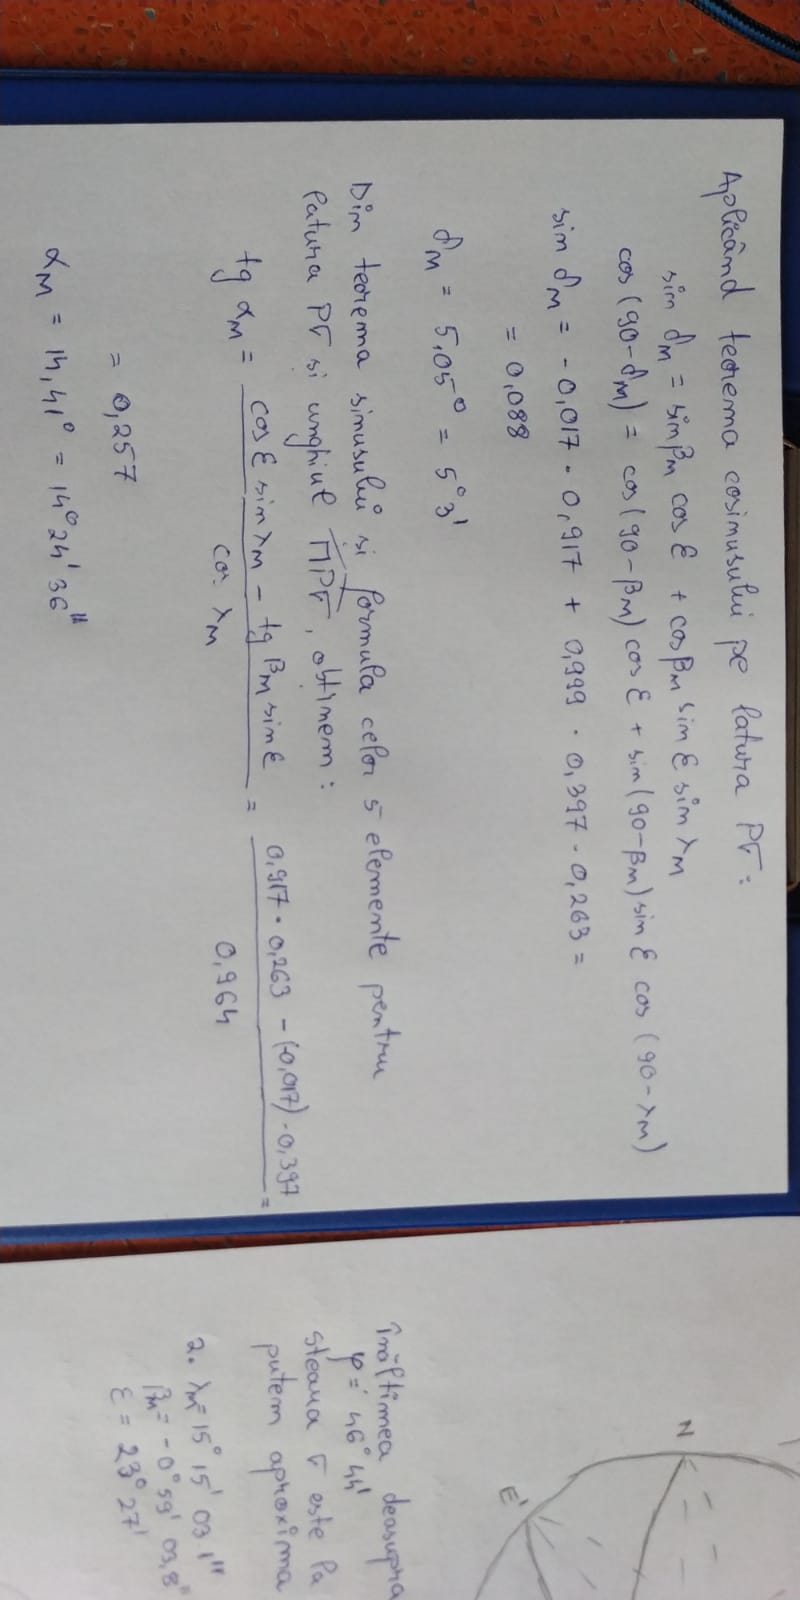 Aplicând teorema cosinusului pe latura PΓ:
sin δM = sin βM cos ε + cos βM sin ε sin λM
cos(90-δM) = cos(90-βM) cos ε + sin(90-βM) sin ε cos(90-λM)
sin δM = -0,017 · 0,917 + 0,999 · 0,397 · 0,263 =
= 0,088
δM = 5,05° = 5°3'
Din teorema sinusului și formula celor 5 elemente pentru
latura PΓ și unghiul MPΓ, obținem:
tg αM = (cos ε sin λM - tg βM sin ε) / cos λM = (0,917 · 0,263 - (-0,017) · 0,397) / 0,964 =
= 0,257
αM = 14,41° = 14°24'36"
N
E'
Înălțimea deasupra
φ = 46°44'
steaua Γ este la
putem aproxima
2. λM = 15° 15' 03,1"
βM = -0° 59' 03,8"
ε = 23° 27'